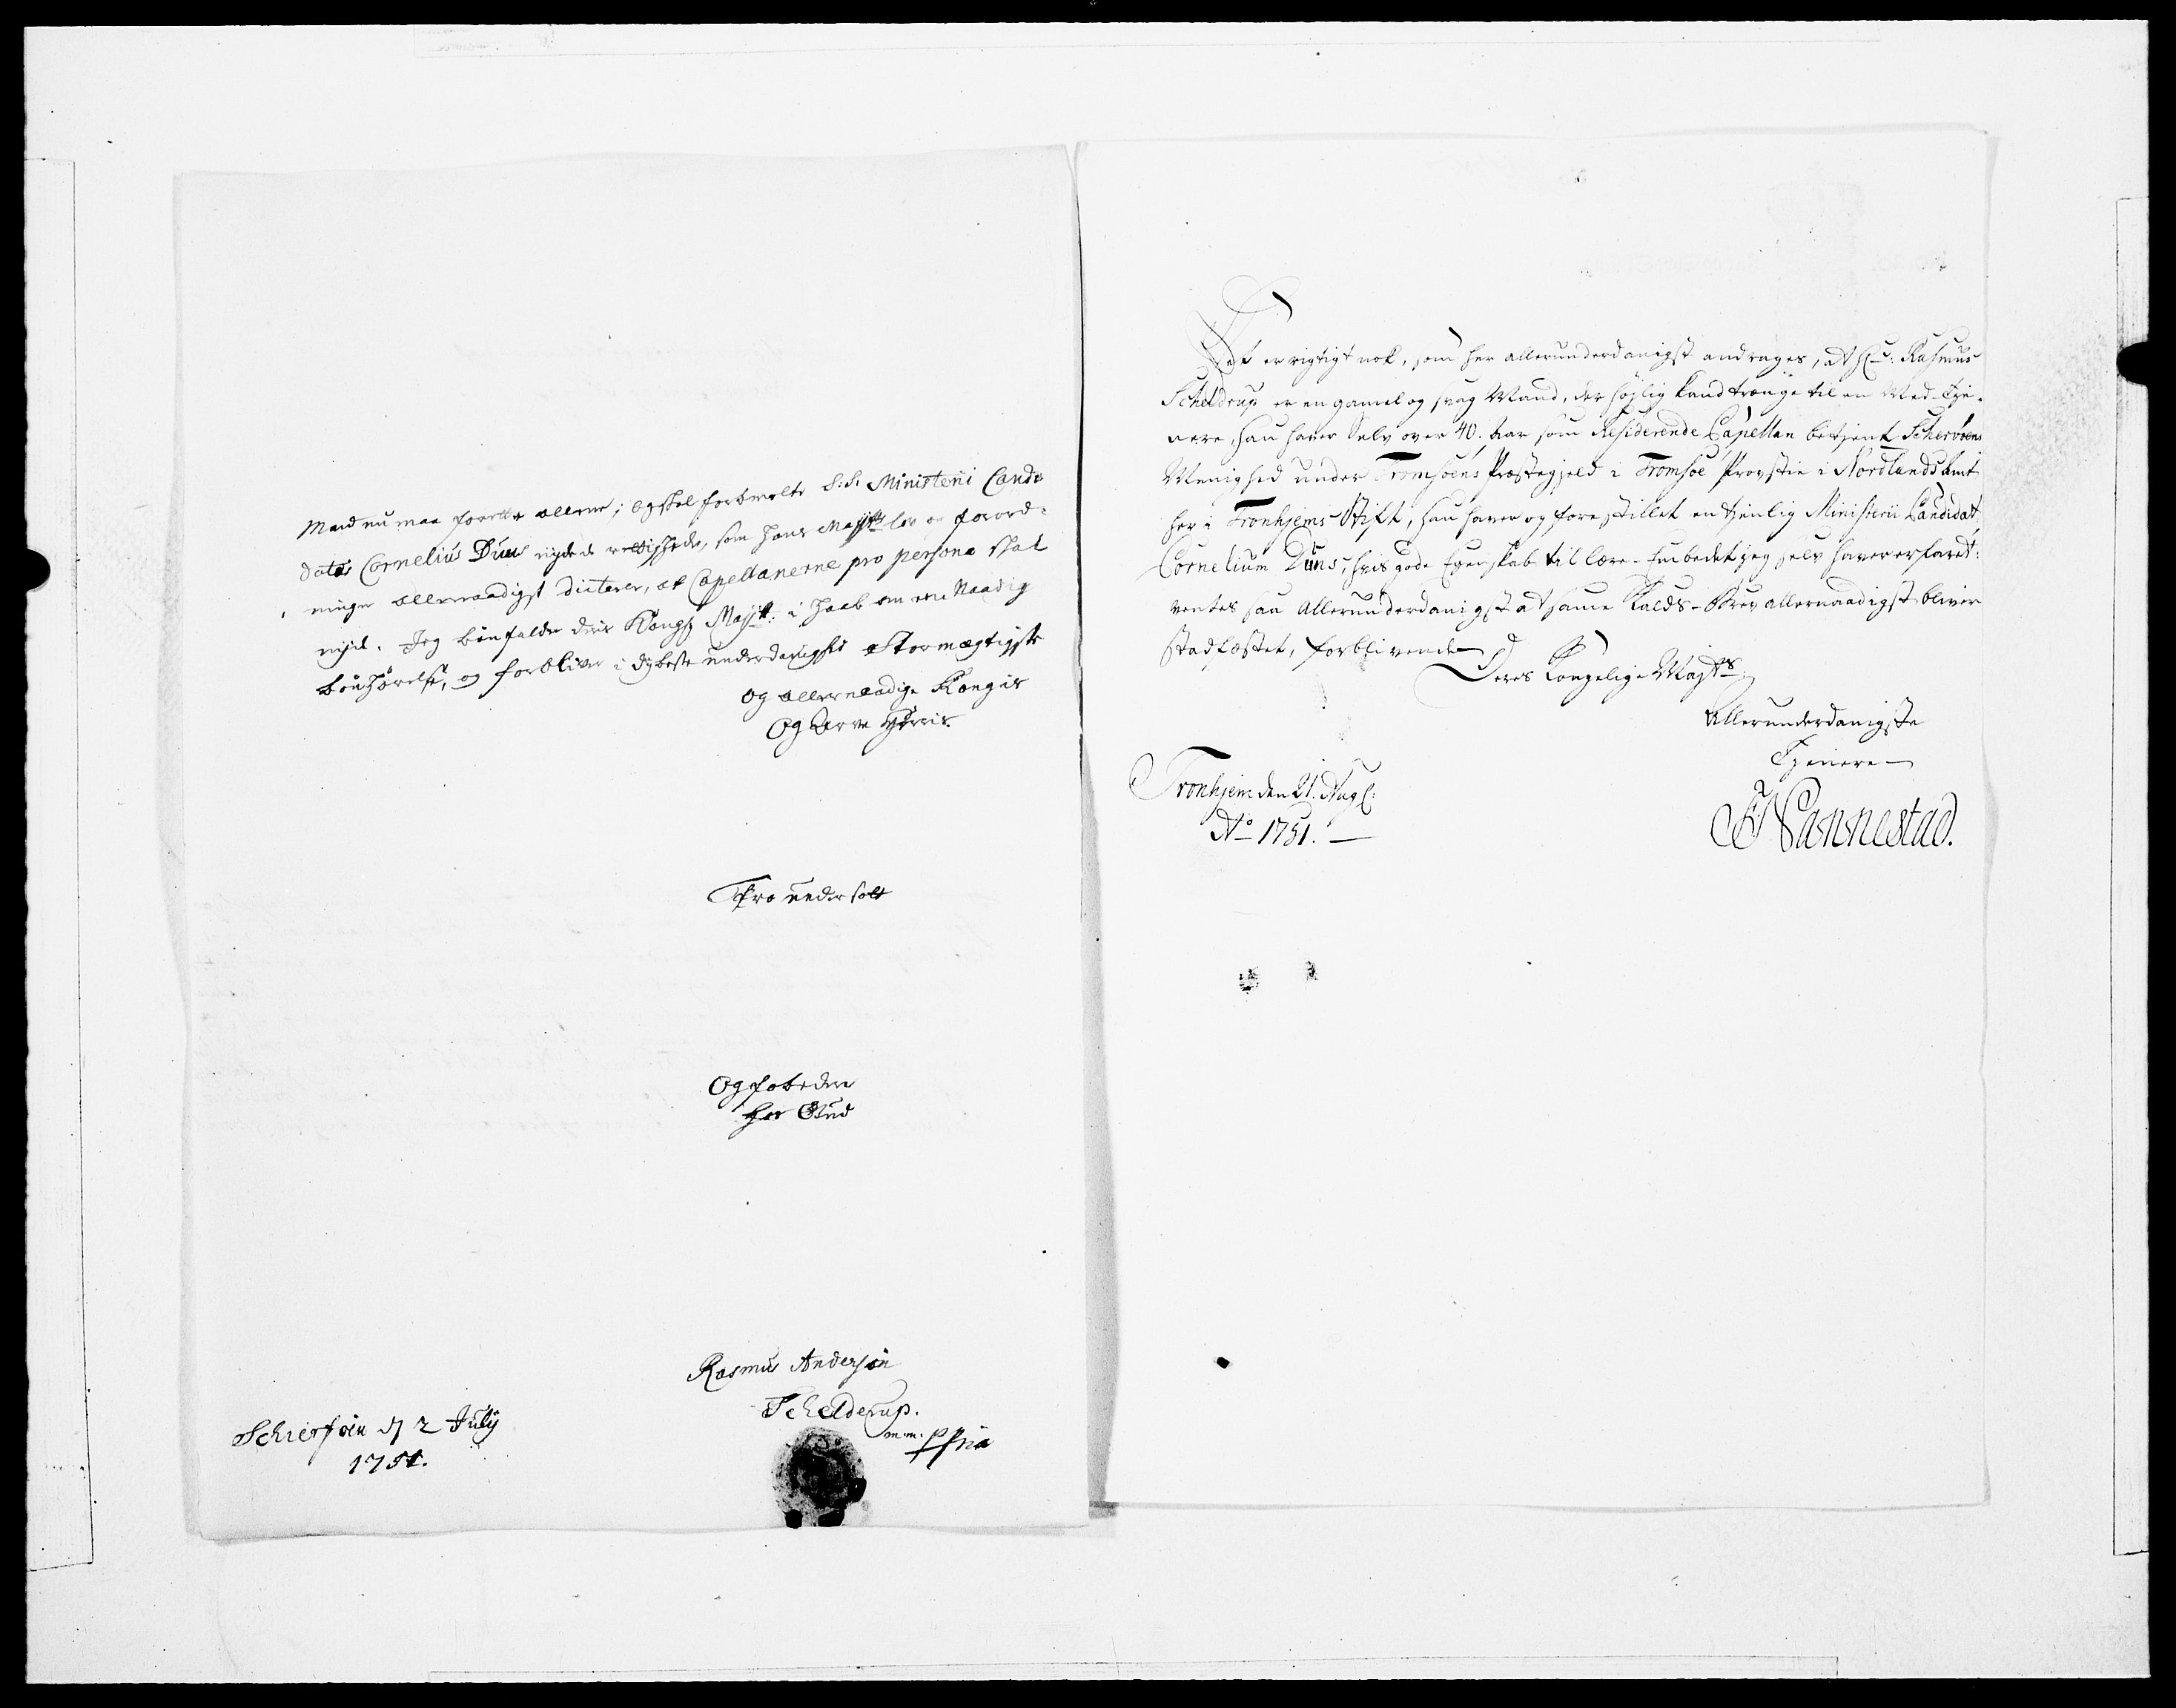 Mand nu maa forrette alleene; og skal forbemelte S:S: Ministerii Candi
datus Cornelius Duus nyde de rettigheder, som hans Maj:ts lov og forord-
ninger allernaadigst dicterer, at Capellanerne pro persona skal
nyde. Jeg bönfalder deris Kongl: Maj:tt: i haab om een Naadig
bönhörelse, og forbliver i dybeste underdanighed Stormægtigste
og allernaadigste Kongis
Og Arve Herris
Tro undersolt
Og forbedere
hos Gud
Rasmus Andersön
Schelderup.
m.m. ppria
Schierföen d 2 July
1751.
Det er rigtigt nok, som her allerunderdanigst andrages, at Hr: Rasmus
Scheldrup er en gamel og svag Mand, der höjlig kand trænge til en Med-Tje-
nere, han haver Selv over 40. Aar som Residerende Capellan betjent Schervöens
Menighed under Tromsöens Præstegjeld i Tromsöe Provstie i Nordlands Amt
her i Tronhjems Stift, han haver og forestillet en tjenlig Ministerii Candidat
Cornelium Duus, hvis gode Egenskab til lære-Embedet jeg selv haver erfaret:
ventes saa Allerunderdanigst at samme Kalds-Brev allernaadigst bliver
stadfæstet, forblivende
Deres Kongelige Majts
Allerunderdanigste
Tjenere
Tronhjem den 21. Aug:
Ao 1751.
F Nannestad.